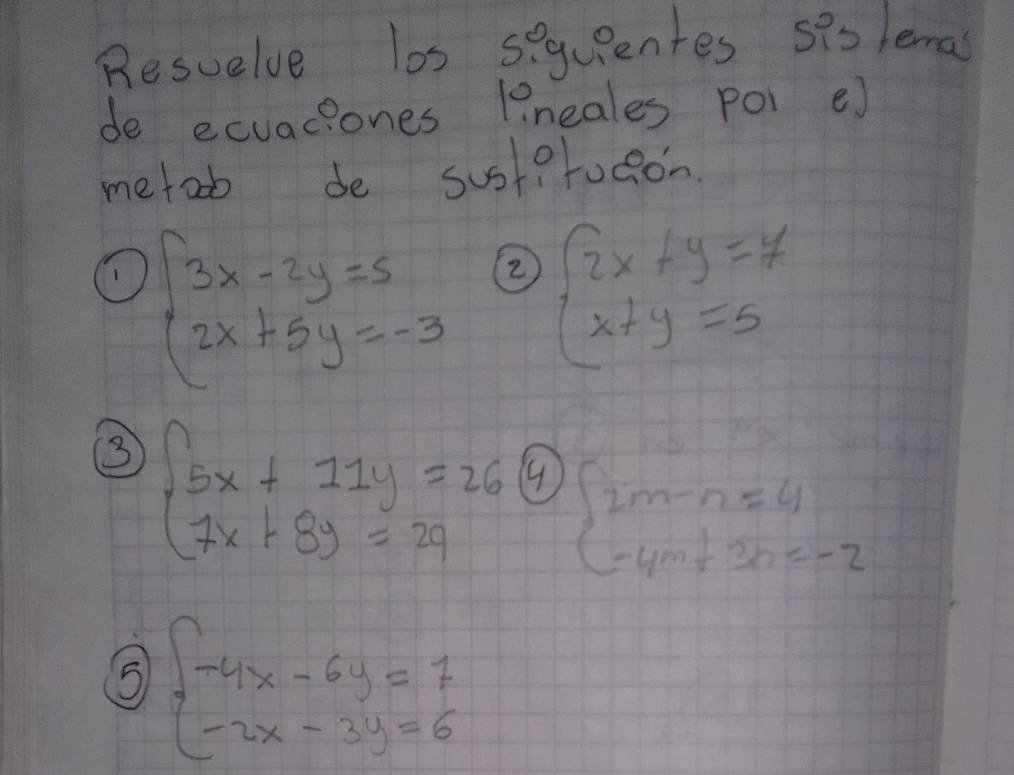 Resuelve los siguientes sistemas
de ecuaciones lineales por el
metodo de sustitución.
① 3x - 2y = 5 ② 2x + y = 7
2x + 5y = -3 x + y = 5
③ 5x + 11y = 26 ④ 2m - n = 4
7x + 8y = 29 -4m + 3n = -2
⑤ -4x - 6y = 7
-2x - 3y = 6